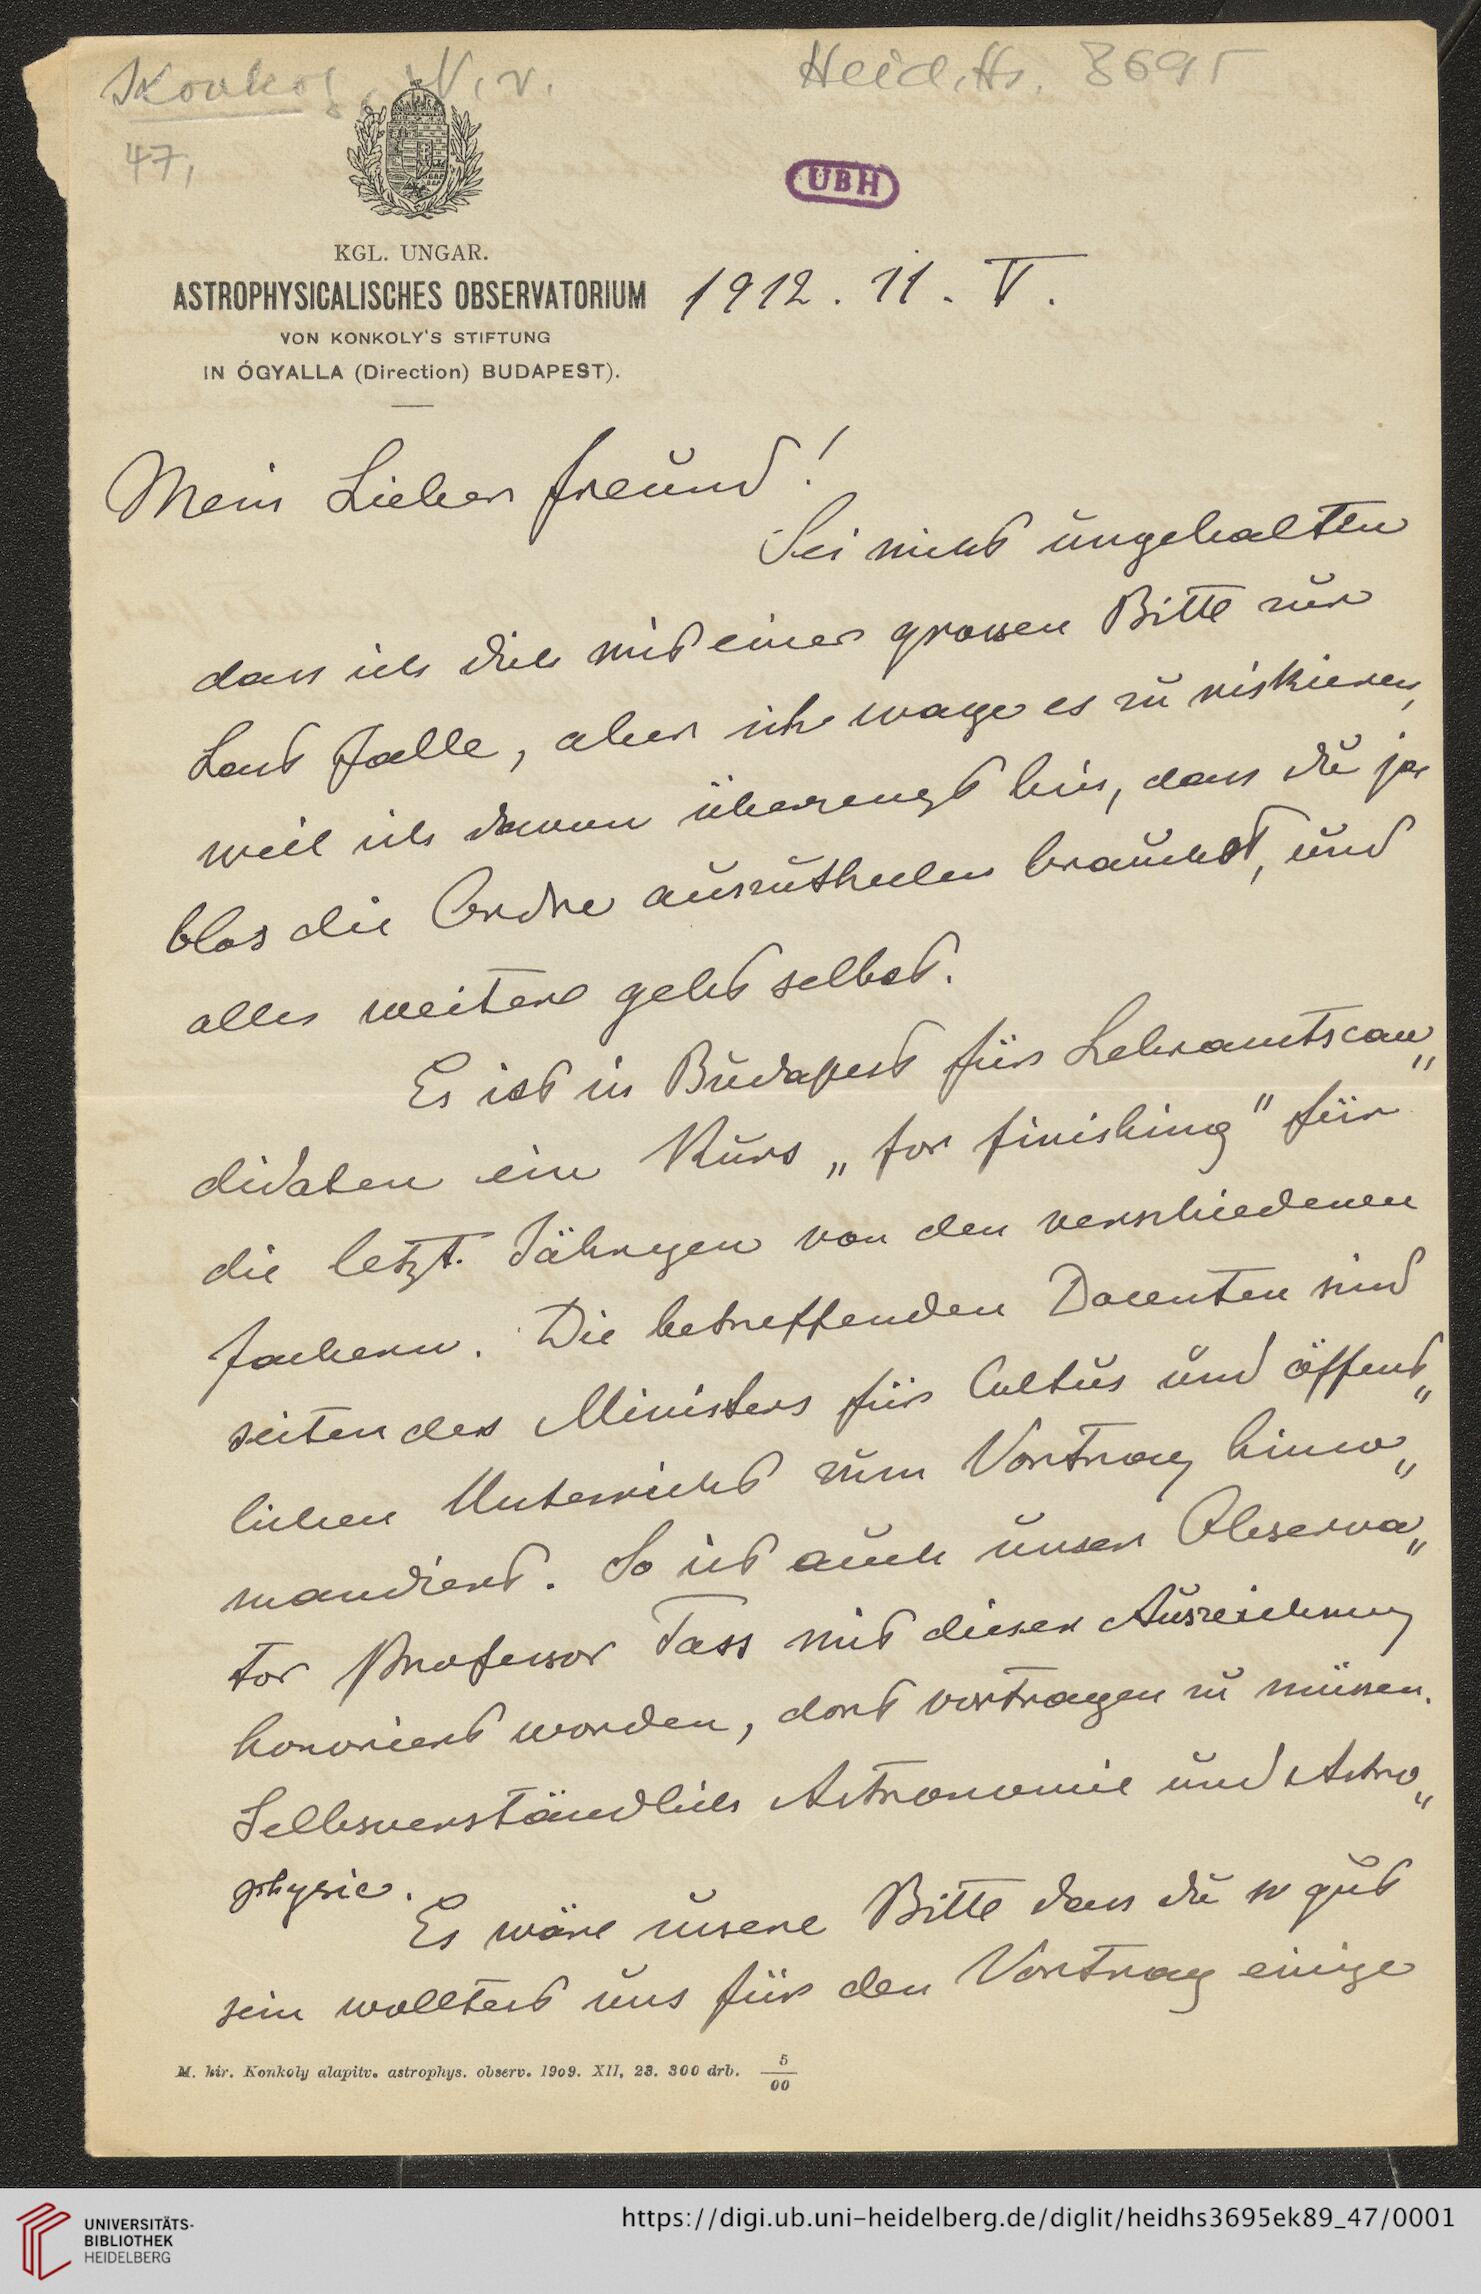 Konkoly, N. v.
Heid. Hs. 3695
47,
UBH
KGL. UNGAR.
ASTROPHYSICALISCHES OBSERVATORIUM
VON KONKOLY'S STIFTUNG
IN ÓGYALLA (Direction) BUDAPEST).
1912. 11. V.
Mein Lieber Freund!
Sei nicht ungehalten
dass ich dich mit einer grossen Bitte zur
Last falle, aber ich wage es zu riskieren,
weil ich davon überzeugt bin, dass du ja
blos die Ordre auszutheilen brauchst, und
alles weitere geht selbst.
Es ist in Budapest für Lehramtscan„
didaten ein Kurs „for finishing" für
die letzt. Jährigen von den verschiedenen
Fächern. Die betreffenden Docenten sind
seiten des Ministers für Cultus und öffent„
lichen Unterricht zum Vortrag hinco„
mandiert. So ist auch unser Observa„
tor Professor Tass mit dieser Auszeichnung
honoriert worden, dort vortragen zu müssen.
Selbsverständlich Astronomie und Astro„
physic.
Es wäre unsere Bitte dass du so gut
sein wolltest uns für den Vortrag einige
M. kir. Konkoly alapitv. astrophys. observ. 1909. XII, 23. 300 drb. 5/00
UNIVERSITÄTS-
BIBLIOTHEK
HEIDELBERG
https://digi.ub.uni-heidelberg.de/diglit/heidhs3695ek89_47/0001